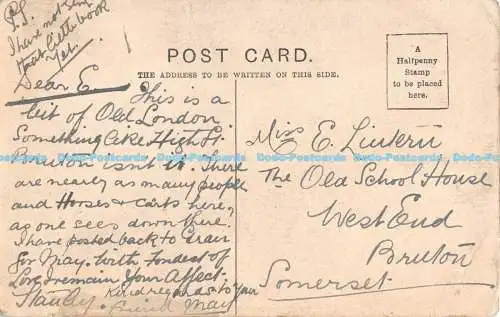 P.S.
I have not seen
that little book
yet.
POST CARD.
THE ADDRESS TO BE WRITTEN ON THIS SIDE.
A
Halfpenny
Stamp
to be placed
here.
Dear E. This is a
bit of Old London.
Something like High St.
Bruton isn't it. There
are nearly as many people
and Horses & Carts here,
as one sees down there.
I have posted back to
for May. With Fondest of
Love I remain Your Affect.
Stanley. Kind regards to your
Friend May
Miss E. Lintern
The Old School House
West End
Bruton
Somerset.
Oldpostcards